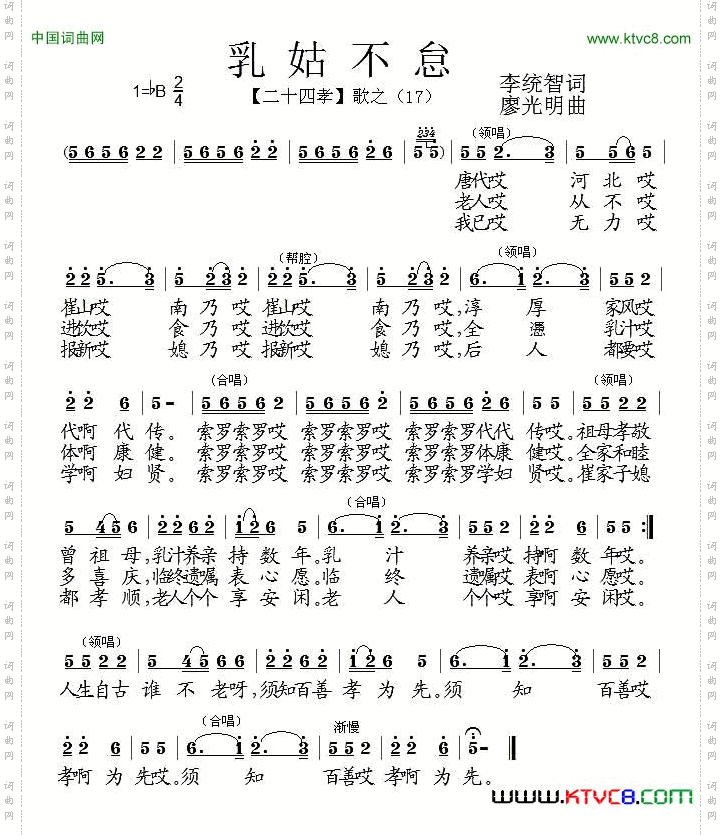 中国词曲网
www.ktvc8.com
乳姑不怠
1=♭B 2/4
【二十四孝】歌之（17）
李统智词
廖光明曲
(5656 22 | 5656 22 | 5656 26 | 234 55) | 552. 3 | 5 56 5 |
（领唱）
唐代哎 河北哎
老人哎 从不哎
我已哎 无力哎
（帮腔）
（领唱）
225. 3 | 5 23 2 | 225. 3 | 5 23 2 | 6. 1 2. 3 | 55 2 |
崔山哎 南乃哎 崔山哎 南乃哎,淳厚 家风哎
进饮哎 食乃哎 进饮哎 食乃哎,全凭 乳汁哎
报新哎 媳乃哎 报新哎 媳乃哎,后人 都要哎
（合唱）
（领唱）
22 6 | 5 – | 5656 2 | 5656 2 | 5656 26 | 55 | 55 22 |
代啊代传。索罗索罗哎 索罗索罗哎 索罗索罗代代 传哎。祖母孝敬
体啊康健。索罗索罗哎 索罗索罗哎 索罗索罗体康 健哎。全家和睦
学啊妇贤。索罗索罗哎 索罗索罗哎 索罗索罗学妇 贤哎。崔家子媳
（合唱）
5 45 6 | 22 62 | 126 5 | 6. 1 2. 3 | 55 2 | 22 6 | 55 :‖
曾祖母,乳汁养亲 持数年。乳汁 养亲哎 持啊数年哎。
多喜庆,临终遗嘱 表心愿。临终 遗嘱哎 表啊心愿哎。
都孝顺,老人个个 享安闲。老人 个个哎 享啊安闲哎。
（领唱）
55 22 | 5 45 66 | 22 62 | 126 5 | 6. 1 2. 3 | 55 2 |
人生自古 谁不老呀,须知百善 孝为先。须知 百善哎
（合唱）
渐慢
22 6 | 55 | 6. 1 2. 3 | 55 2 | 22 6 | 5 – ‖
孝啊为先哎。须知 百善哎 孝啊为先。
www.KTVC8.COM
词曲网